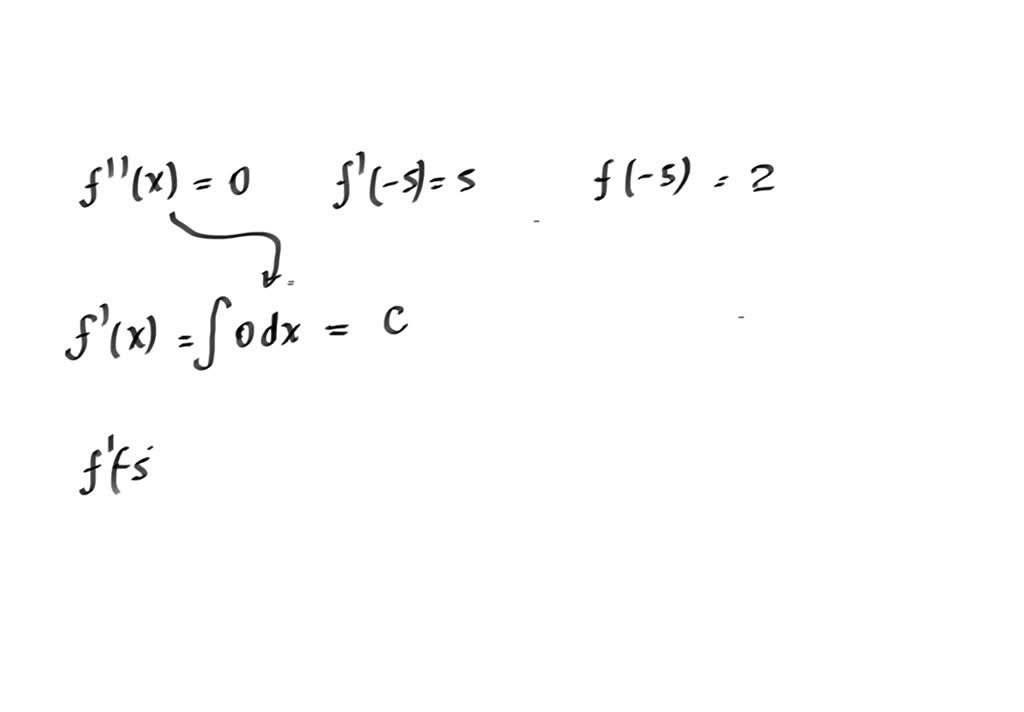 f''(x) = 0 f'(-5) = 5 f(-5) = 2
f'(x) = ∫ 0 dx = C
f'(-5